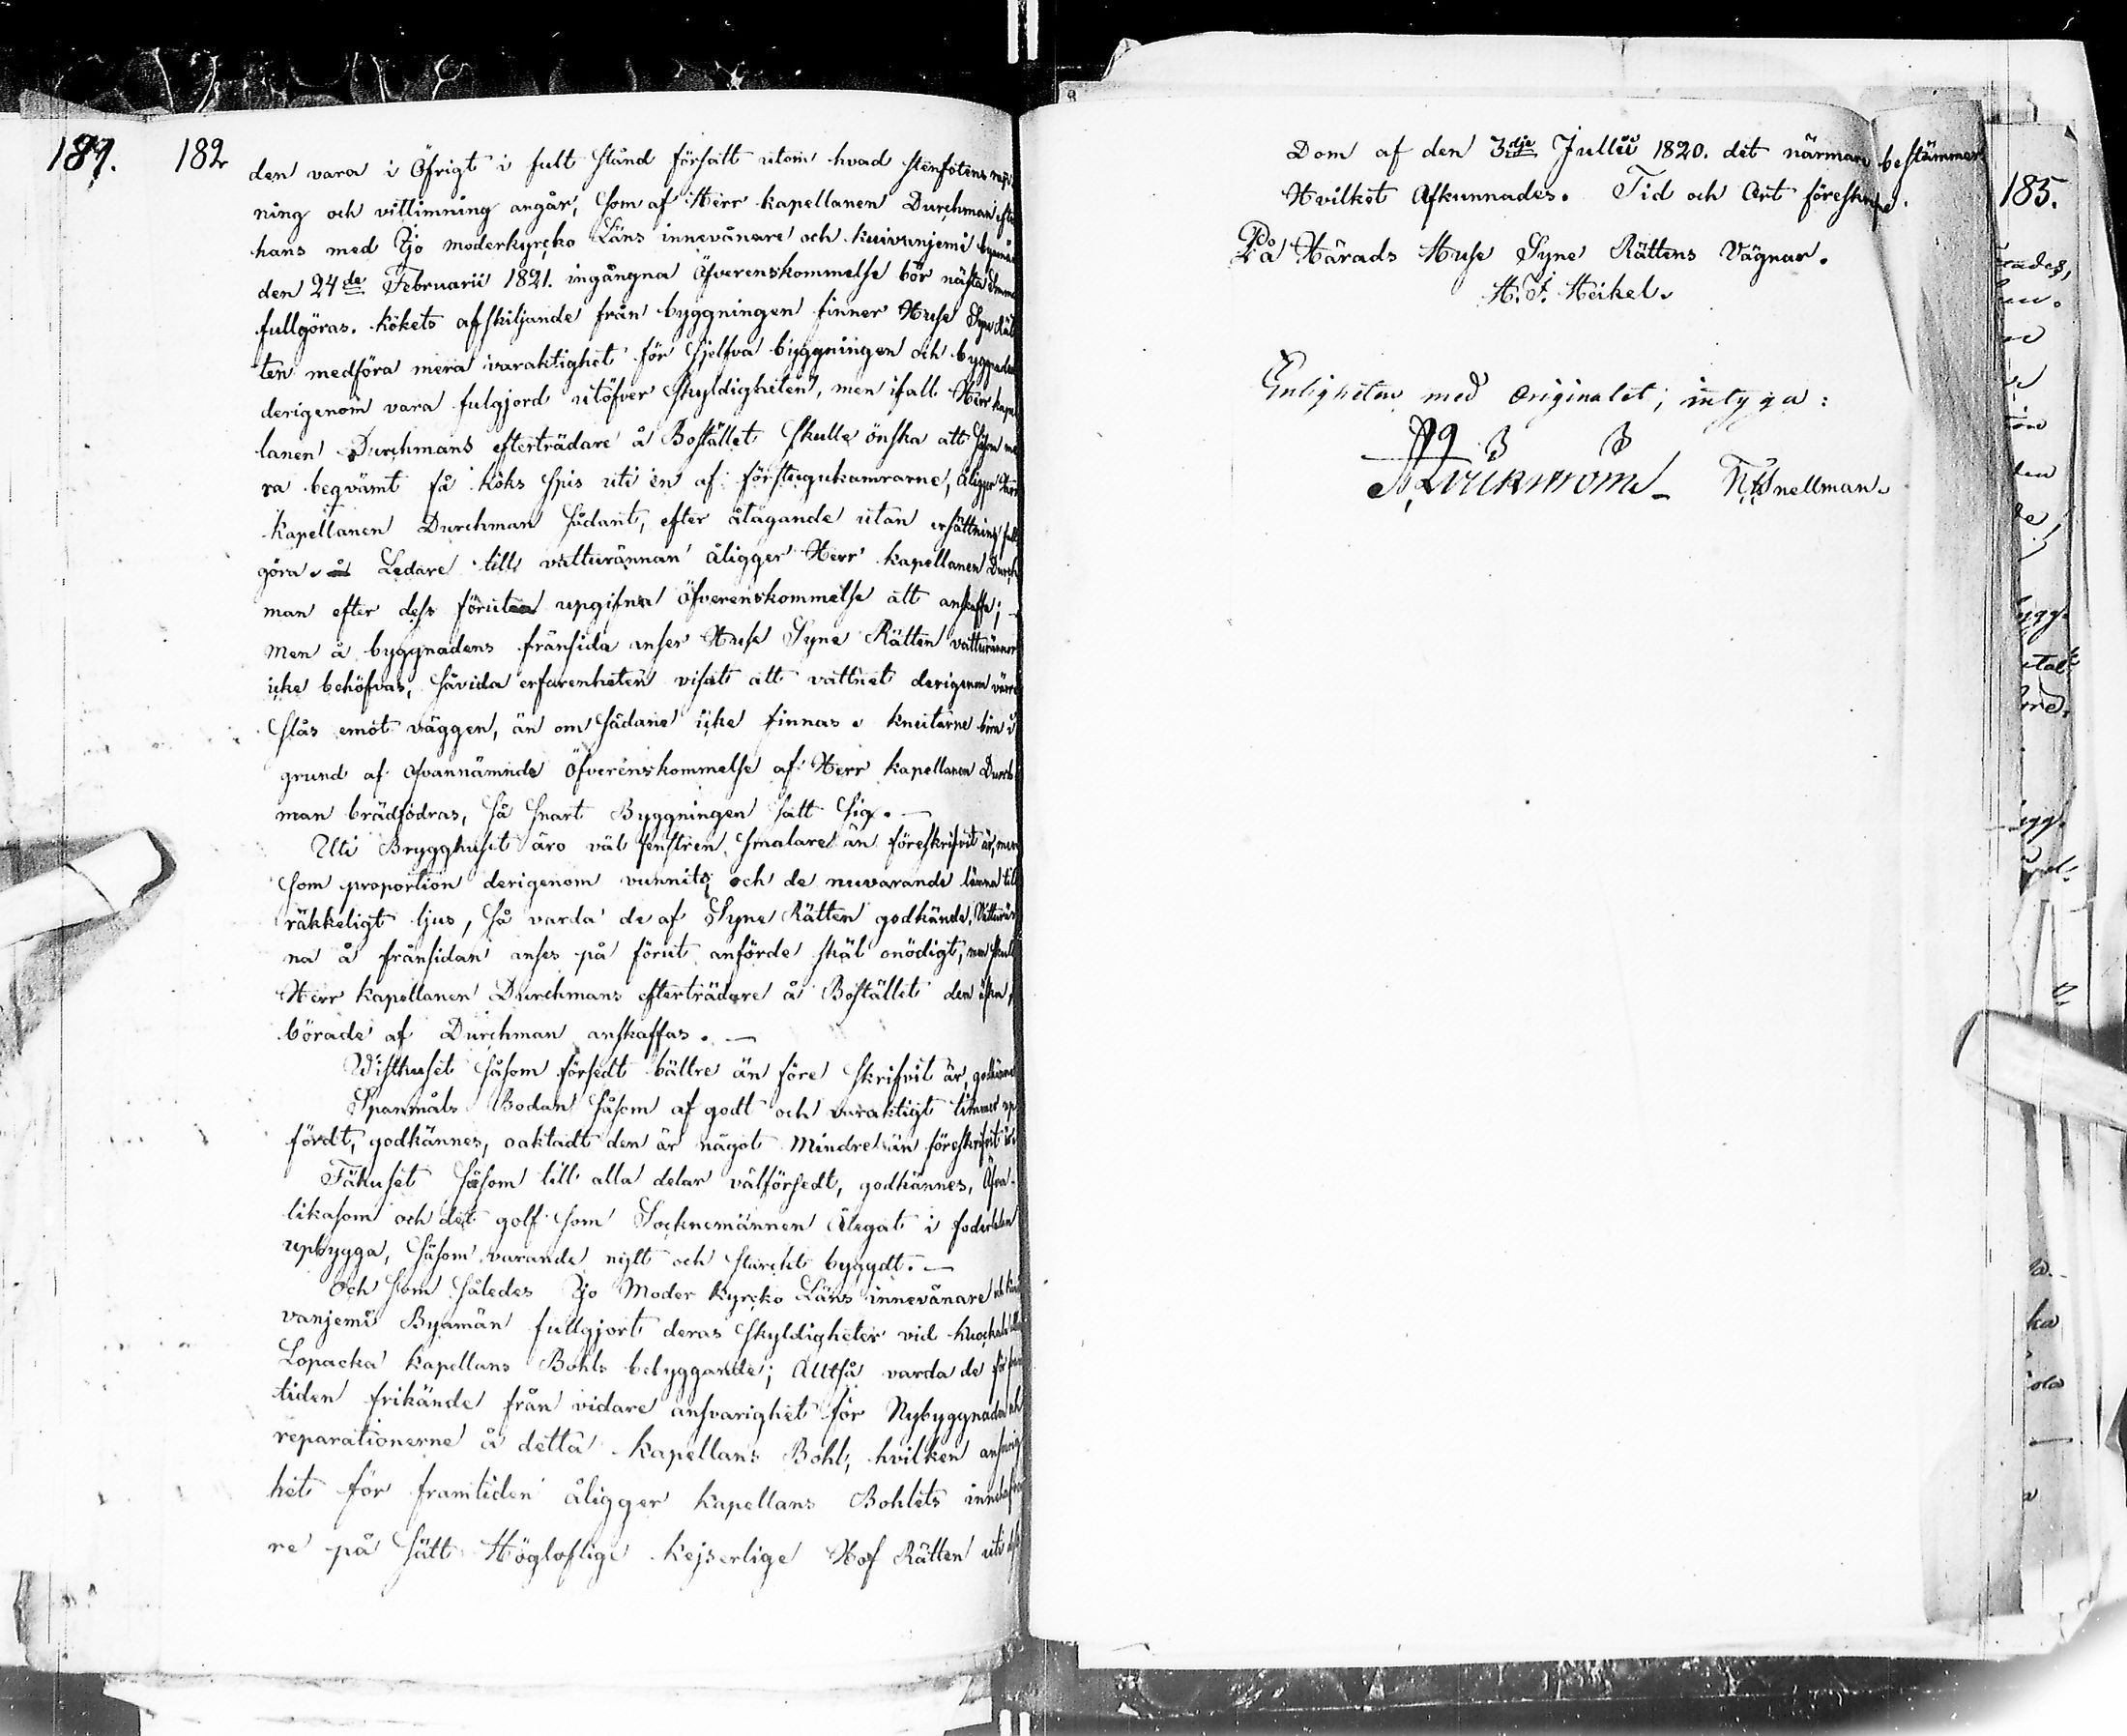 187. 182
den vara i Öfrigt i fult stånd försatt utom hvad stenfotens
ning och vittimning angår, som af Herr kapellanen Durchman
hans med Ijo moderkyrcko Läns innevånare och kuivanjemi
den 24de Februarii 1821. ingångna Öfverenskommelse bör nästa
fullgöras. Kökets afskiljande från byggningen finner Huse Syne Rät
ten medföra mera varaktighet för sjelfva byggningen och byggnaden
derigenom vara fulgjord utöfver skyldigheten, men ifall Herr kapel
lanen Durchmans efterträdare å Bostället skulle önska att
ra beqvämt få köks spis uti en af förstugukamrarne, åligger Herr
kapellanen Durchman sådant, efter åtagande utan ersättning full
göra. Ledare till vatturännan åligger Herr kapellanen Durch
man efter dess förut upgifna Öfverenskommelse att anskaffa;
men å byggnadens frånsida anser Huse Syne Rätten vatturännor
icke behöfvas, såvida erfarenheten visat att vattnet derigenom värre
slås emot väggen, än om sådane icke finnas. Kneitarne böra i
grund af ofvannämnde Öfverenskommelse af Herr kapellanen Durch
man brädfodras, så snart Byggningen satt sig. —
Uti Brygghuset äro väl fenstren smalare än föreskrifvit är, men
som proportion derigenom vunnits och de nuvarande lämna till
räkkeligt ljus, så varda de af Syne Rätten godkände. Vatturän
na å frånsidan anses på förut anförde skäl onödigt, men skulle
Herr kapellanen Durchmans efterträdare å Bostället den äska,
börade af Durchman anskaffas. —
Wisthuset såsom försedt bättre än före skrifvit är, godkännes
Spanmåls Bodan såsom af godt och varaktigt timmer up
fördt, godkännes, oaktadt den är något mindre än föreskrifvit är.
Fähuset såsom till alla delar välförsedt, godkännes,
likasom och det golf som Socknemännen Ålegat i foderladen
upbygga, såsom varande nytt och starckt byggdt. —
Och som således Ijo Moder Kyrcko Läns innevånare och Kui
vanjemi Byamän fullgjort deras skyldigheter vid
Lopacka kapellans Bohls bebyggande; Alltså varda de för fram
tiden frikände från vidare ansvarighet för Nybyggnader och
reparationerne å detta kapellans Bohl, hvilken ansvarig
het för framtiden åligger kapellans Bohlets innehafva
re på sätt Högloflige Kejserlige Hof Rätten uti dess
Dom af den 3dje Jullii 1820. det närmare bestämmer
Hvilket Afkunnades. Tid och Ort föreskrefne.
På Härads Huse Syne Rättens Vägnar.
H. J. Heikel.
Enligheten med Originalet, intyga:
N. Snellman.
185.